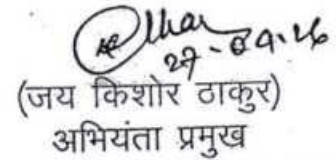 27-09-16
(जय किशोर ठाकुर)
अभियंता प्रमुख